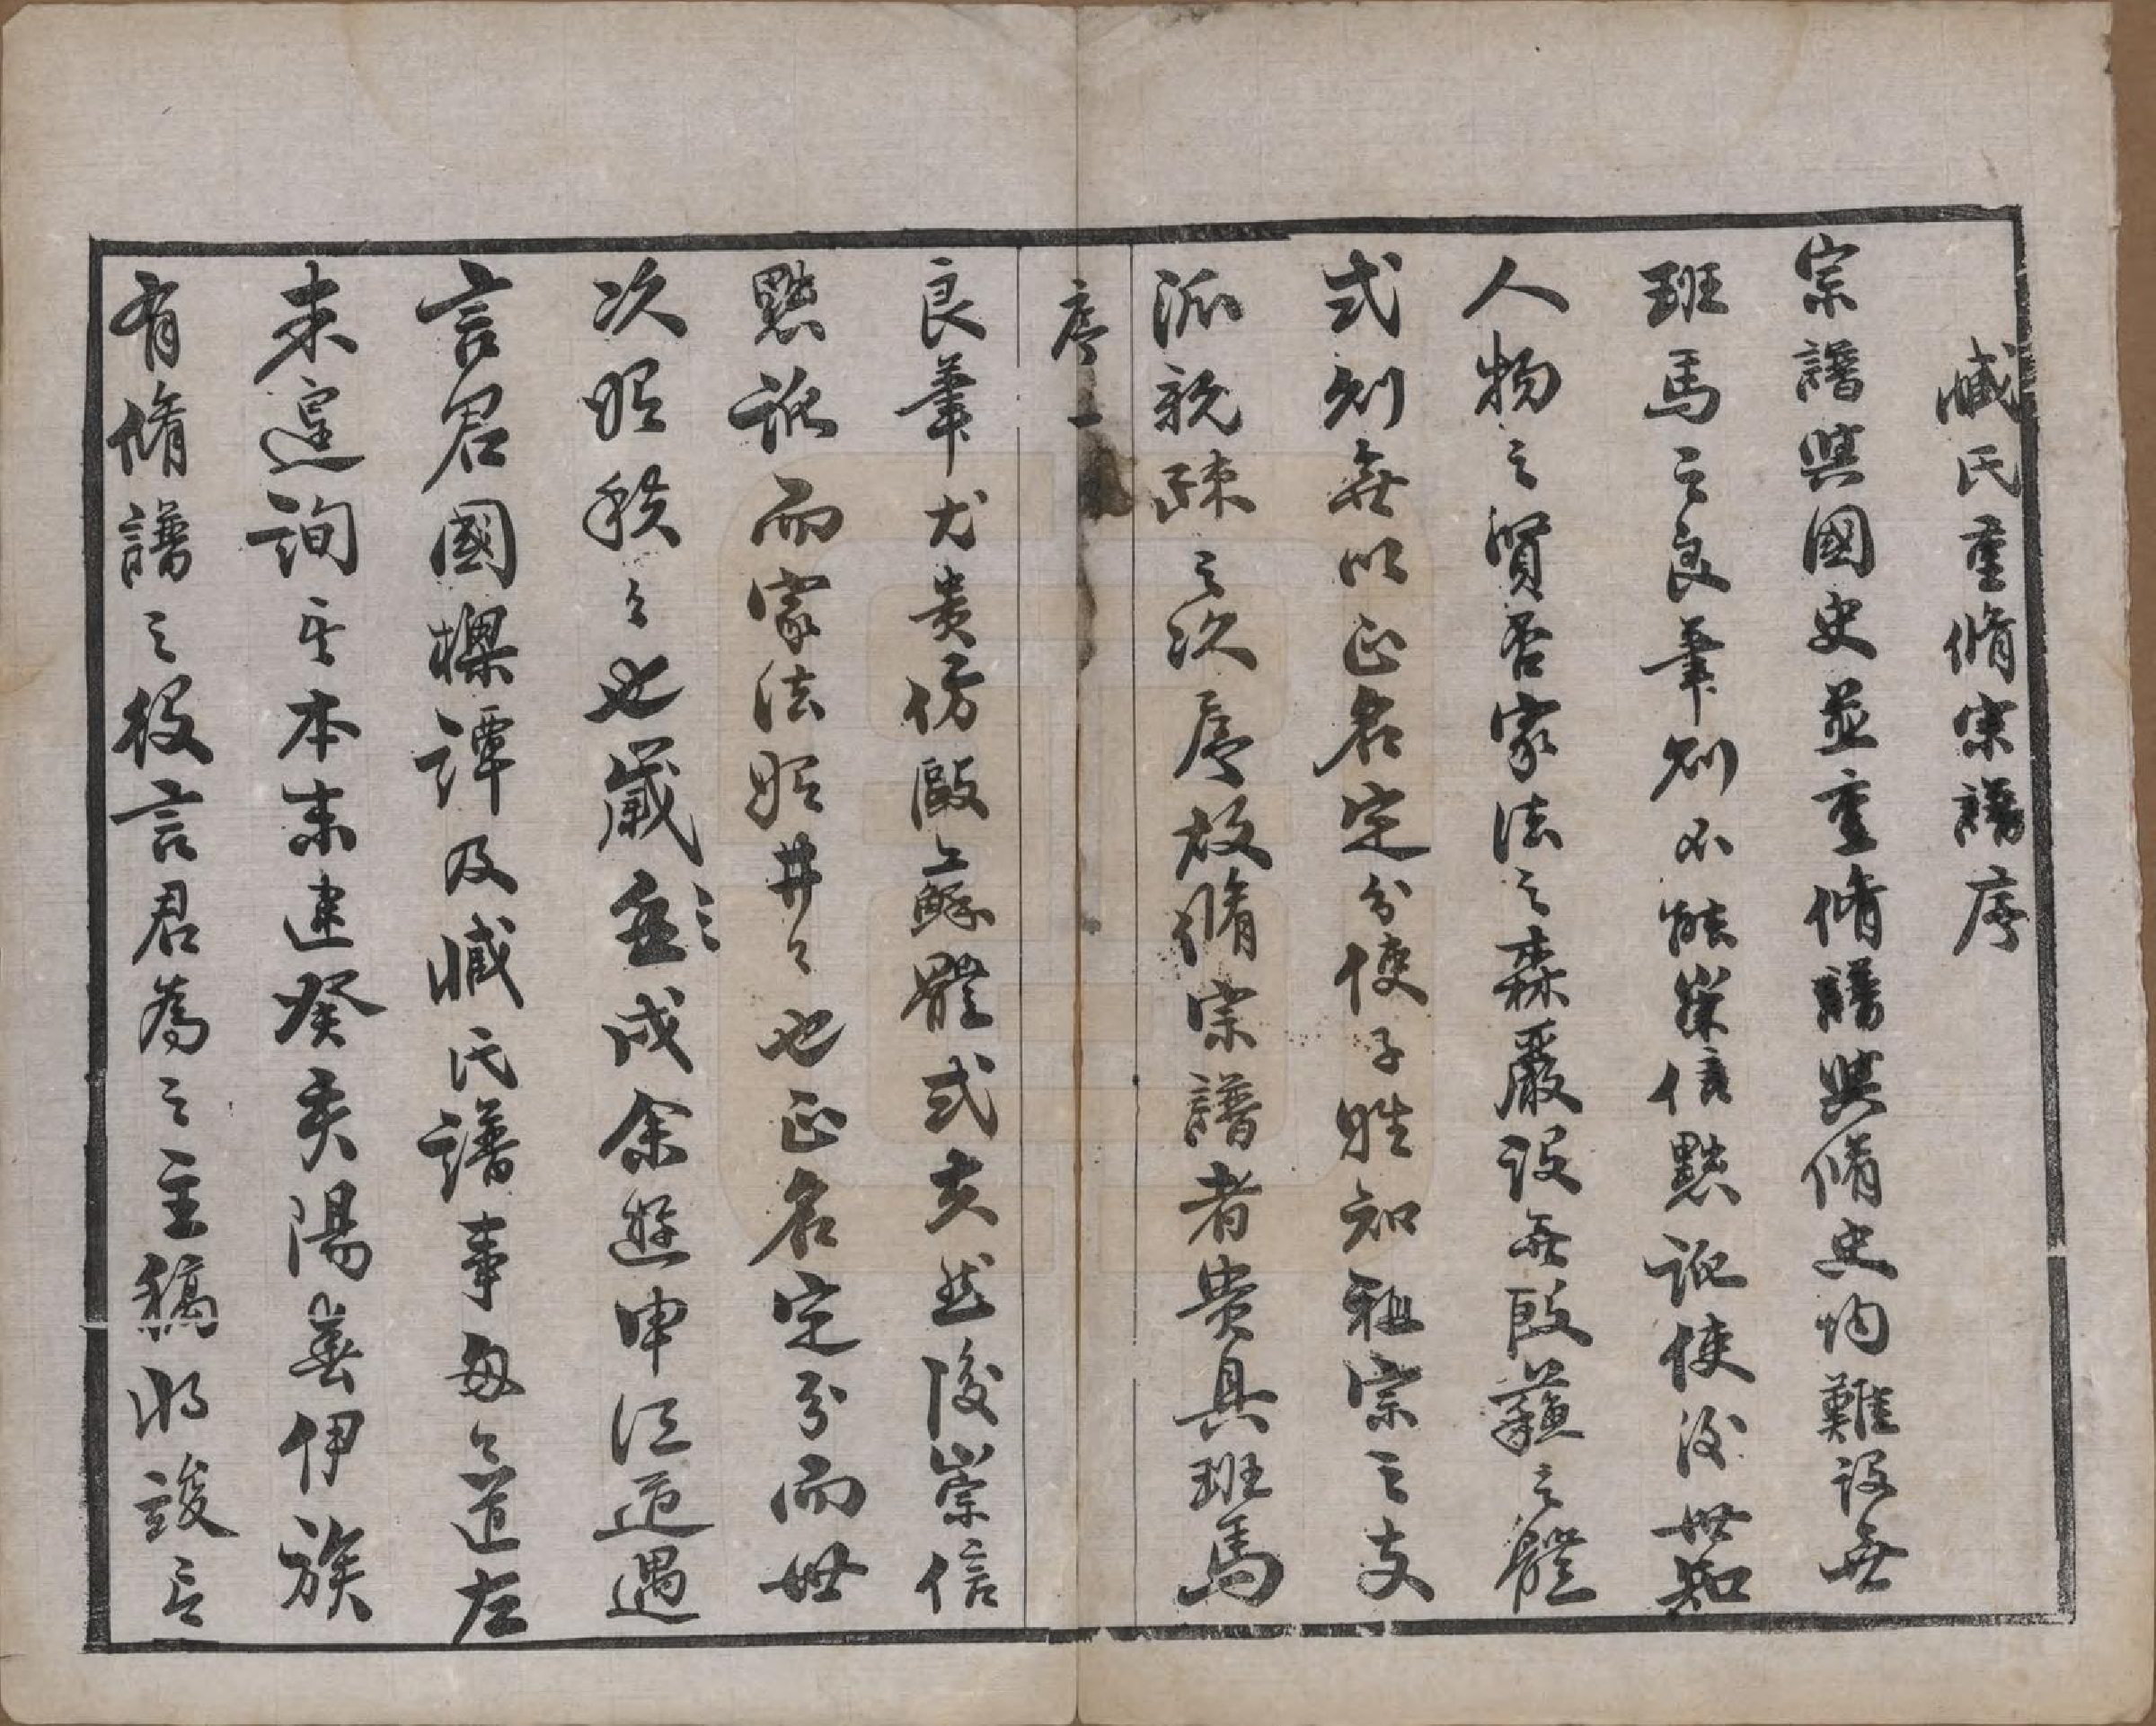 臧氏重脩宗譜序
宗譜與國史並重脩譜與脩史均難設無
班馬之良筆則不能崇信黜訛使後世知
人物之賢否家法之森嚴設無歐蘇之體
式則無以正名定分使子姓知祖宗之支
派親疎之次序故脩宗譜者貴具班馬
序 一
良筆尤貴仿歐蘇體式夫然後崇信
黜訛而家法昭井〻也正名定分而世
次昭秩〻也歲壬戌三之余遊申江適遇
言君國樑譚及臧氏譜事匆〻道左
未遑詢其本末逮癸亥陽春伊族
有脩譜之役言君為之主稿將竣之